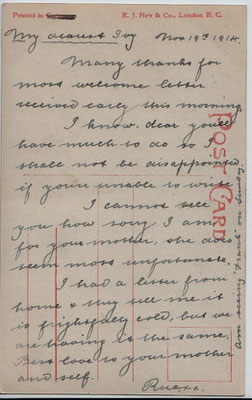 Printed in
R. J. Hey & Co., London E. C.
POST CARD
My dearest Ivy Nov 19th 1914
Many thanks for
most welcome letter
received early this morning
I know, dear you'll
have much to do so I
shall not be disappointed
if you're unable to write
I cannot tell
you how sorry I am
for your mother, she does
seem most unfortunate
I had a letter from
home & they tell me it
is frightfully cold, but we
are having it the same,
Best love to your mother
and self.
am seeing on Sunday